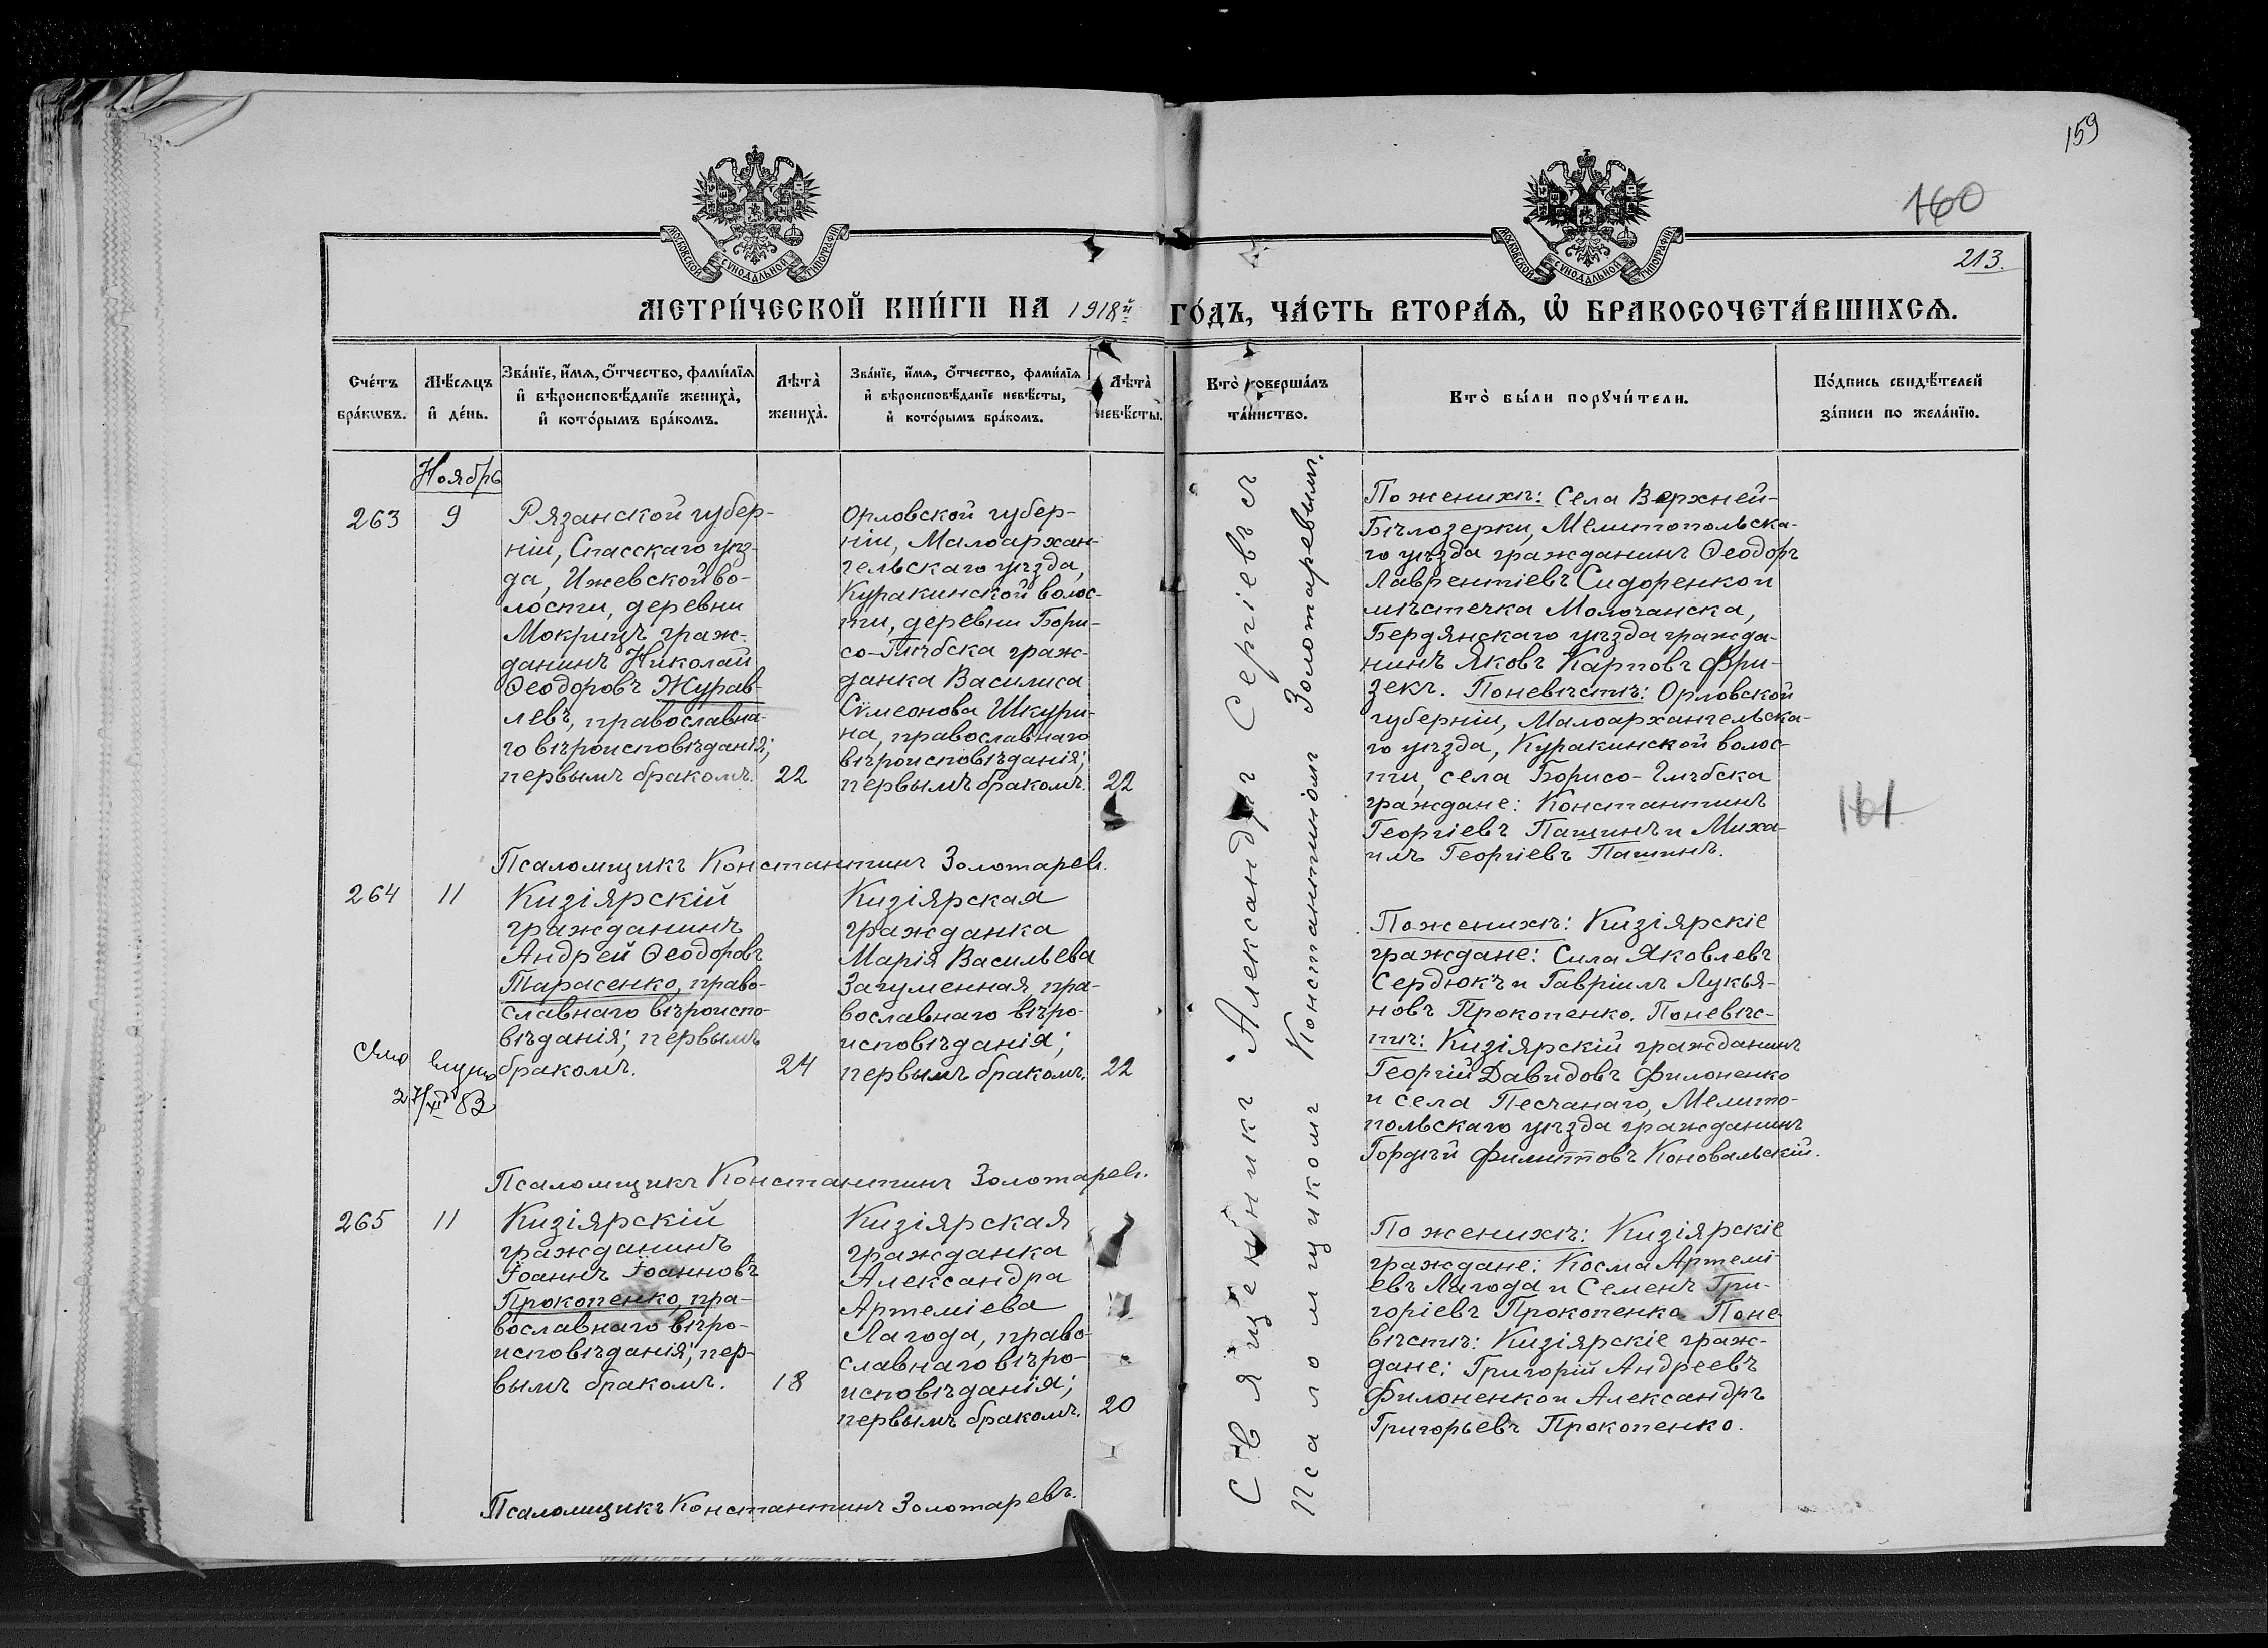 159
160
213.
МОСКОВСКОЙ СѴНОДАЛЬНОЙ ТИПОГРАФІИ
МОСКОВСКОЙ СѴНОДАЛЬНОЙ ТИПОГРАФІИ
МЕТРИ́ЧЕСКОЙ КНИ́ГИ НА 1918й ГО́ДЪ, ЧА́СТЬ ВТОРА́Ѧ, Ѡ҆ БРАКОСОЧЕТА́ВШИХСѦ.
Сче́тъ
бра́кѡвъ.
Мѣ́сѧцъ
и҆ де́нь.
Зва́нїе, и҆́мѧ, ѻ҆́тчество, фами́лїѧ
и҆ вѣроисповѣ́данїе жениха̀,
и҆ кото́рымъ бра́комъ.
Лѣта̀
жениха̀.
Зва́нїе, и҆́мѧ, ѻ҆́тчество, фами́лїѧ
и҆ вѣроисповѣ́данїе невѣ́сты,
и҆ кото́рымъ бра́комъ.
Лѣта̀
невѣ́сты.
Кто̀ соверша́лъ
та́инство.
Кто̀ бы́ли порꙋчи́тели.
По́дпись свидѣ́телей
за́писи по жела́нїю.
Ноябрь
263
9
Рязанской губер-
ніи, Спасскаго уѣз-
да, Ижевской во-
лости, деревни
Мокрицъ граж-
данинъ Николай
Ѳеодоровъ Журав-
левъ, православна-
го вѣроисповѣданія;
первымъ бракомъ.
22
Орловской губер-
ніи, Малоархан-
гельскаго уѣзда,
Куракинской волос-
ти, деревни Бори-
со-Глѣбска граж-
данка Василиса
Сѵмеонова Шкури-
на, православнаго
вѣроисповѣданія;
первымъ бракомъ.
22
Священникъ Александръ Сергіевъ съ
Псаломщикомъ Константиномъ Золотаревымъ.
По женихѣ: Села Верхней-
Бѣлозерки, Мелитопольска-
го уѣзда гражданинъ Ѳеодоръ
Лаврентіевъ Сидоренко и
мѣстечка Молочанска,
Бердянскаго уѣзда гражда-
нинъ Яковъ Карповъ Фри-
зекъ. По невѣстѣ: Орловской
губерніи, Малоархангельска-
го уѣзда, Куракинской волос-
ти, села Борисо-Глѣбска
граждане: Константинъ
Георгіевъ Пашинъ и Миха-
илъ Георгіевъ Пашинъ.
161
Псаломщикъ Константинъ Золотаревъ.
264
11
Кизіярскій
гражданинъ
Андрей Ѳеодоровъ
Тарасенко, право-
славнаго вѣроиспо-
вѣданія; первымъ
бракомъ.
24
Кизіярская
гражданка
Марія Васильева
Загуменная, пра-
вославнаго вѣро-
исповѣданія;
первымъ бракомъ.
22
По женихѣ: Кизіярскіе
граждане: Сила Яковлевъ
Сердюкъ и Гавріилъ Лукья-
новъ Прокопенко. По невѣс-
тѣ: Кизіярскій гражданинъ
Георгій Давидовъ Филоненко
и села Песчанаго, Мелито-
польскаго уѣзда гражданинъ
Гордѣй Филипповъ Коновальскій.
Псаломщикъ Константинъ Золотаревъ.
265
11
Кизіярскій
гражданинъ
Іоаннъ Іоанновъ
Прокопенко, пра-
вославнаго вѣро-
исповѣданія; пер-
вымъ бракомъ.
18
Кизіярская
гражданка
Александра
Артеміева
Лагода, право-
славнаго вѣро-
исповѣданія;
первымъ бракомъ.
20
По женихѣ: Кизіярскіе
граждане: Косма Артемі-
евъ Лагода и Семенъ Гри-
горіевъ Прокопенко. По не-
вѣстѣ: Кизіярскіе граж-
дане: Григорій Андреевъ
Филоненко и Александръ
Григорьевъ Прокопенко.
Псаломщикъ Константинъ Золотаревъ.